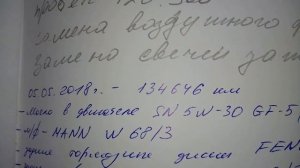 пробег 120 500
замена воздушного ф
замена свечи за
05.05.2018г. - 134646 км
- масло в двигателе SN 5W-30 GF-5
- м/ф - MANN W 68/3
- тормозные диски FEN